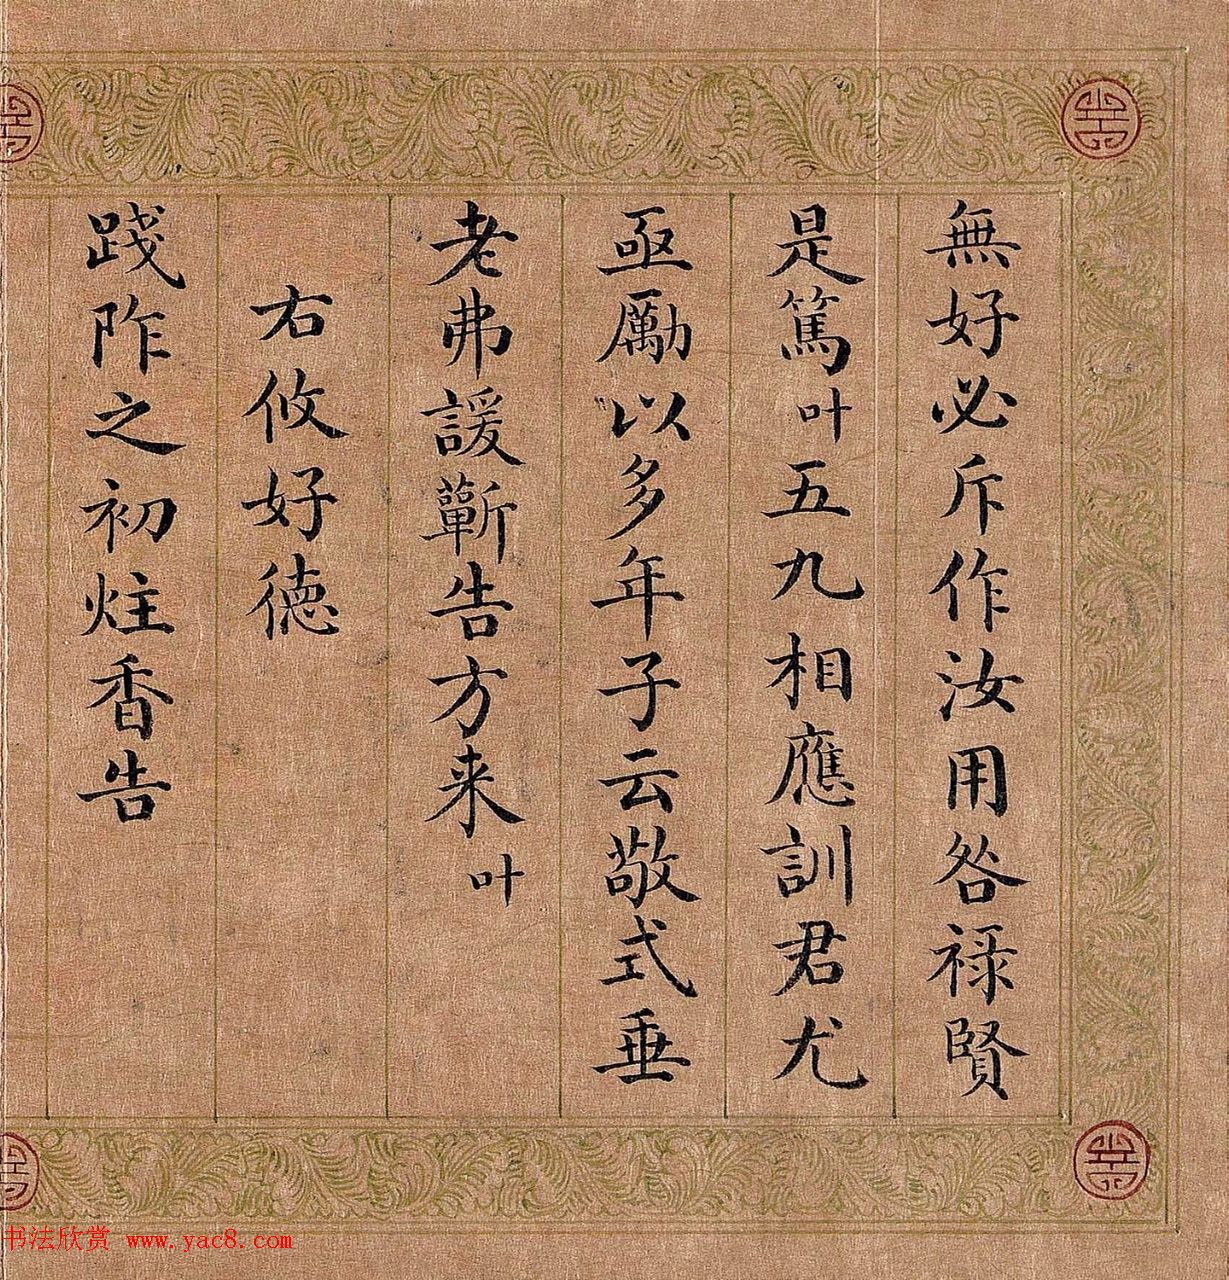 無好必斥作汝用咎祿賢
是篤叶五九相應訓君尤
亟勵以多年子云敬式垂
老弗諼蘄告方来叶
右攸好德
踐阼之初炷香告
书法欣赏 www.yac8.com